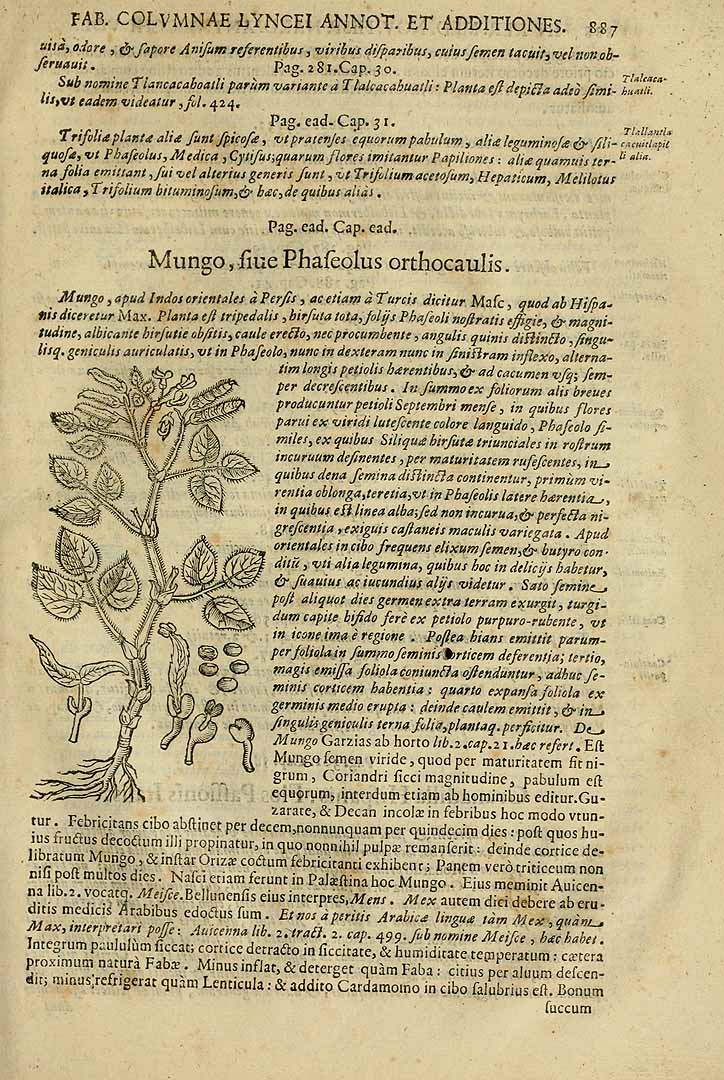 FAB. COLVMNAE LYNCEI ANNOT. ET ADDITIONES. 887
uisà, odore, & sapore Anisum referentibus, viribus disparibus, cuius semen tacuit, vel non ob-
seruauit. Pag. 281. Cap. 30.
Sub nomine Tlancacahoatli parùm variante à Tlalcacahuatli: Planta est depicta adeò simi-
lis, vt eadem videatur, fol. 424.
Tlalcaca-
huatli.
Pag. ead. Cap. 31.
Trifoliæ plantæ aliæ sunt spicosæ, vt pratenses equorum pabulum, aliæ leguminosæ & sili-
quosæ, vt Phaseolus, Medica, Cytisus; quarum flores imitantur Papiliones: aliæ quamuis ter-
na folia emittant, sui vel alterius generis sunt, vt Trifolium acetosum, Hepaticum, Melilotus
italica, Trifolium bituminosum, & hæc, de quibus aliàs.
Tlallantla
cacuitlapil
li alia.
Pag. ead. Cap. ead.
Mungo, siue Phaseolus orthocaulis.
Mungo, apud Indos orientales à Persis, ac etiam à Turcis dicitur Masc, quod ab Hispa-
nis diceretur Max. Planta est tripedalis, hirsuta tota, folijs Phaseoli nostratis effigie, & magni-
tudine, albicante hirsutie obsitis, caule erecto, nec procumbente, angulis quinis distincto, singu-
lisq. geniculis auriculatis, vt in Phaseolo, nunc in dexteram nunc in sinistram inflexo, alterna-
tim longis petiolis hærentibus, & ad cacumen vsq; sem-
per decrescentibus. In summo ex foliorum alis breues
producuntur petioli Septembri mense, in quibus flores
parui ex viridi lutescente colore languido, Phaseolo si-
miles, ex quibus Siliquæ hirsutæ triunciales in rostrum
incuruum desinentes, per maturitatem rufescentes, in
quibus dena semina distincta continentur, primùm vi-
rentia oblonga, teretia, vt in Phaseolis latere hærentia,
in quibus est linea alba; sed non incurua, & perfecta ni-
grescentia, exiguis castaneis maculis variegata. Apud
orientales in cibo frequens elixum semen, & butyro con-
ditū, vti alia legumina, quibus hoc in delicijs habetur,
& suauius ac iucundius alijs videtur. Sato semine
post aliquot dies germen extra terram exurgit, turgi-
dum capite bifido ferè ex petiolo purpuro-rubente, vt
in icone ima è regione. Postea hians emittit parum-
per foliola in summo seminis corticem deferentia; tertio,
magis emissa foliola coniuncta ostenduntur, adhuc se-
minis corticem habentia: quarto expansa foliola ex
germinis medio erupta: deinde caulem emittit, & in
singulis geniculis terna folia, plantaq. perficitur. De
Mungo Garzias ab horto lib. 2. cap. 21. hæc refert. Est
Mungo semen viride, quod per maturitatem fit ni-
grum, Coriandri sicci magnitudine, pabulum est
equorum, interdum etiam ab hominibus editur. Gu-
zarate, & Decan incolæ in febribus hoc modo vtun-
tur. Febricitans cibo abstinet per decem, nonnunquam per quindecim dies: post quos hu-
ius fructus decoctum illi propinatur, in quo nonnihil pulpæ remanserit: deinde cortice de-
libratum Mungo, & instar Orizæ coctum febricitanti exhibent; Panem verò triticeum non
nisi post multos dies. Nasci etiam ferunt in Palæstina hoc Mungo. Eius meminit Auicen-
na lib. 2. vocatq. Meisce. Bellunensis eius interpres, Mens. Mex autem dici debere ab eru-
ditis medicis Arabibus edoctus sum. Et nos à peritis Arabicæ linguæ tàm Mex, quàm
Max, interpretari posse: Auicenna lib. 2. tract. 2. cap. 499. sub nomine Meisce, hæc habet.
Integrum paululùm siccat; cortice detracto in siccitate, & humiditate temperatum: cætera
proximum naturâ Fabæ. Minus inflat, & deterget quàm Faba: citius per aluum descen-
dit; minus refrigerat quàm Lenticula: & addito Cardamomo in cibo salubrius est. Bonum
succum